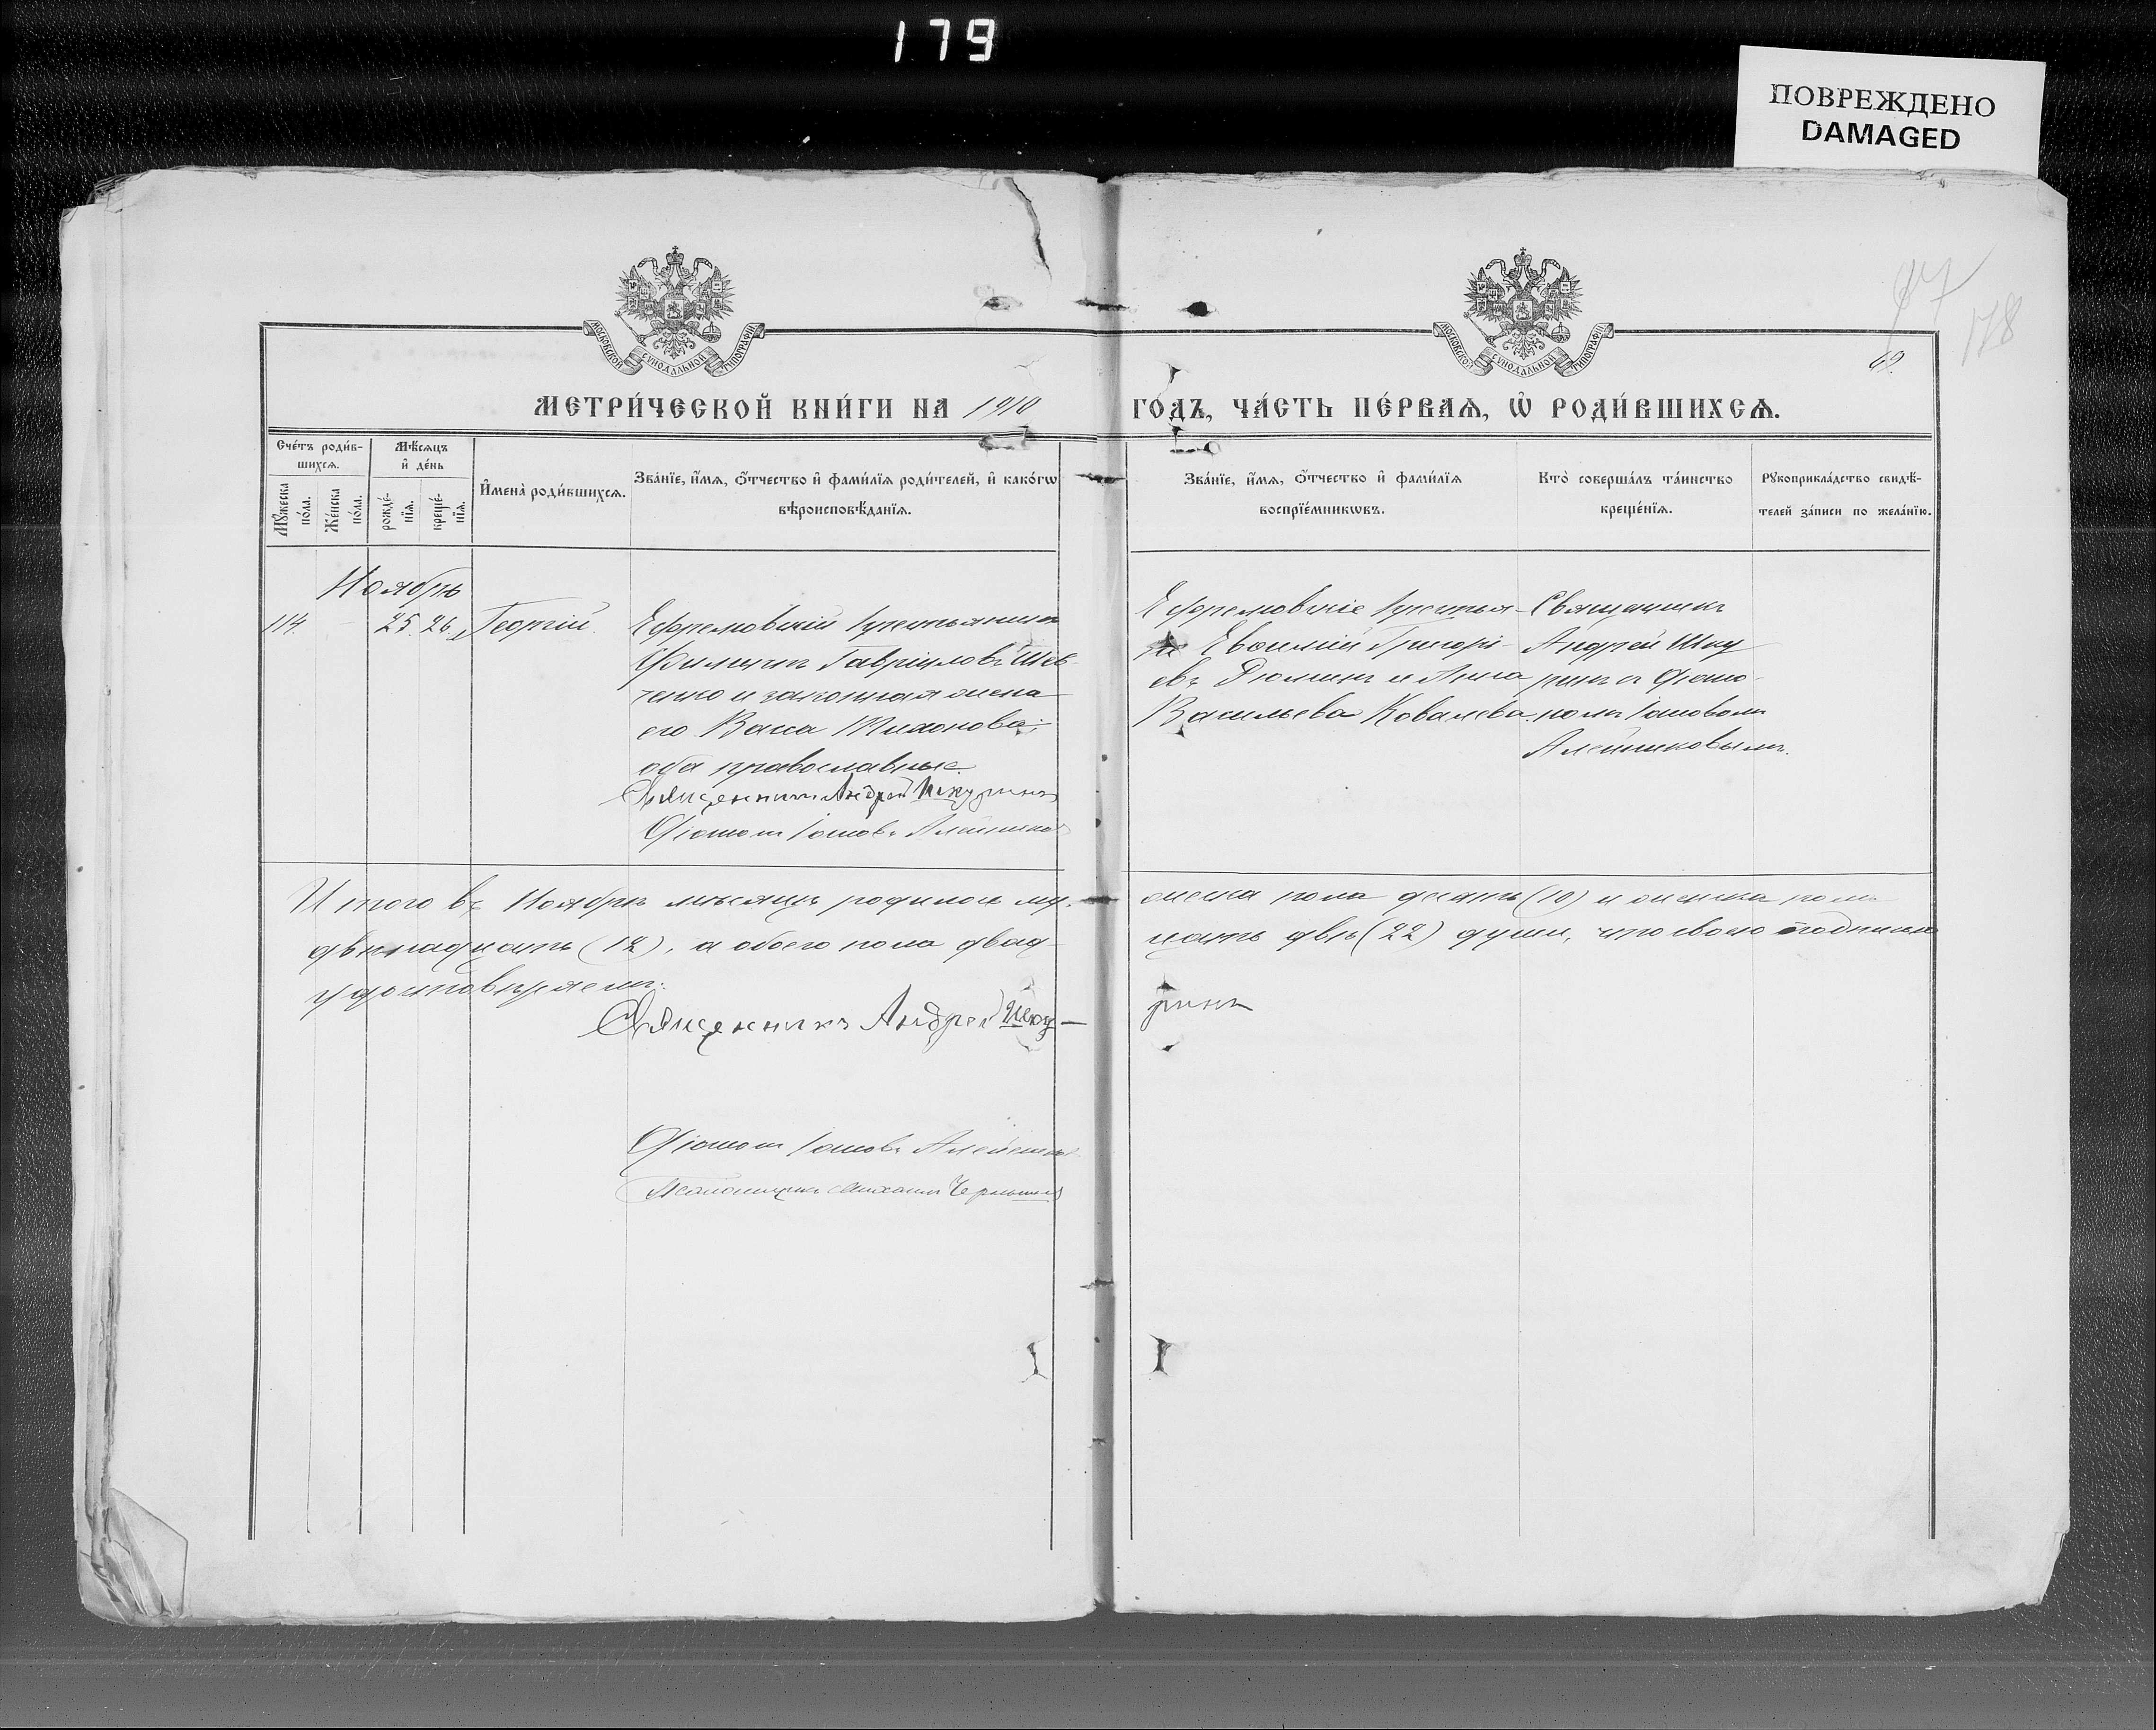 179
ПОВРЕЖДЕНО
DAMAGED
178
69.
МОСКОВСКОЙ СѴНОДАЛЬНОЙ ТИПОГРАФІИ
МОСКОВСКОЙ СѴНОДАЛЬНОЙ ТИПОГРАФІИ
МЕТРИ́ЧЕСКОЙ КНИ́ГИ НА 1910
ГО́ДЪ, ЧА́СТЬ ПЕ́РВАѦ, Ѡ҆ РОДИ́ВШИХСѦ.
Сче́тъ роди́в-
шихсѧ.
Мꙋ́жеска
по́ла.
Же́нска
по́ла.
Мѣ́сѧцъ
и҆ де́нь
рожде́-
нїѧ.
креще́-
нїѧ.
И҆мена̀ роди́вшихсѧ.
Зва́нїе, и҆́мѧ, ѻ҆́тчество и҆ фами́лїѧ роди́телей, и҆ како́гѡ
вѣроисповѣ́данїѧ.
Зва́нїе, и҆́мѧ, ѻ҆́тчество и҆ фами́лїѧ
воспрїе́мникѡвъ.
Кто̀ соверша́лъ та́инство
креще́нїѧ.
Рꙋкоприкла́дство свидѣ́-
телей за́писи по жела́нїю.
Ноябрь
114. 25. 26. Георгій.
Ефремовскій крестьянинъ
Филиппъ Гавріиловъ Шев-
ченко и законная жена
его Васса Тихонова;
оба православные.
Священникъ Андрей Шкуринъ
Діаконъ Іаковъ Алейников
Ефремовскіе крестья-
не Евѳимій Григорі-
евъ Рюминъ и Анна
Васильева Ковалева.
Священникъ
Андрей Шку
ринъ съ Діако-
номъ Іаковомъ
Алейниковымъ.
Итого въ Ноябрѣ мѣсяцѣ родилось му-
жеска пола десять (10) и женска пола
двѣнадцать (12), а обоего пола двад-
цать двѣ (22) души, что своею подписью
удостовѣряемъ:
Священникъ Андрей Шку-
ринъ
Діаконъ Іаковъ Алейников
Псаломщикъ Михаилъ